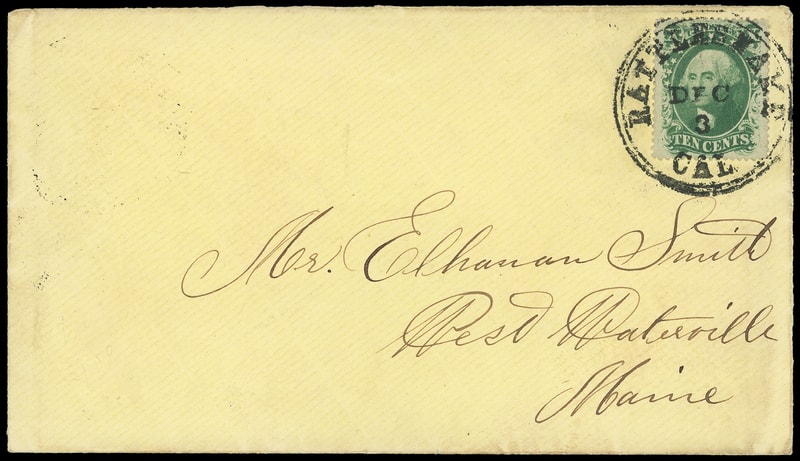 RATTLESNAKE
DEC
3
CAL
TEN CENTS
Mr. Elhanan Smith
West Waterville
Maine